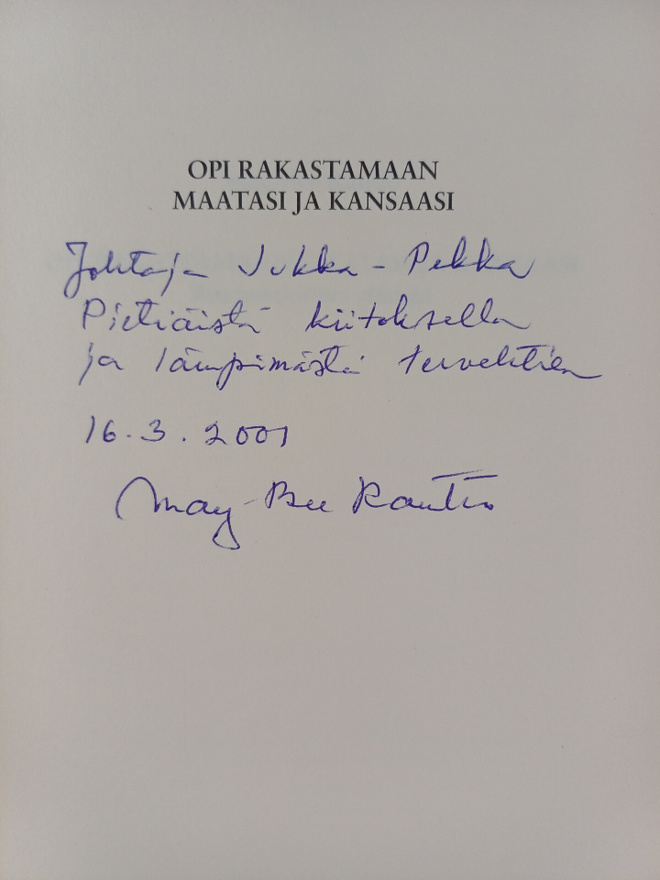 OPI RAKASTAMAAN
MAATASI JA KANSAASI
Johtaja Jukka-Pekka
Pietiäistä kiitoksella
ja lämpimästi tervehtien
16.3.2001
May-Bee Rautio